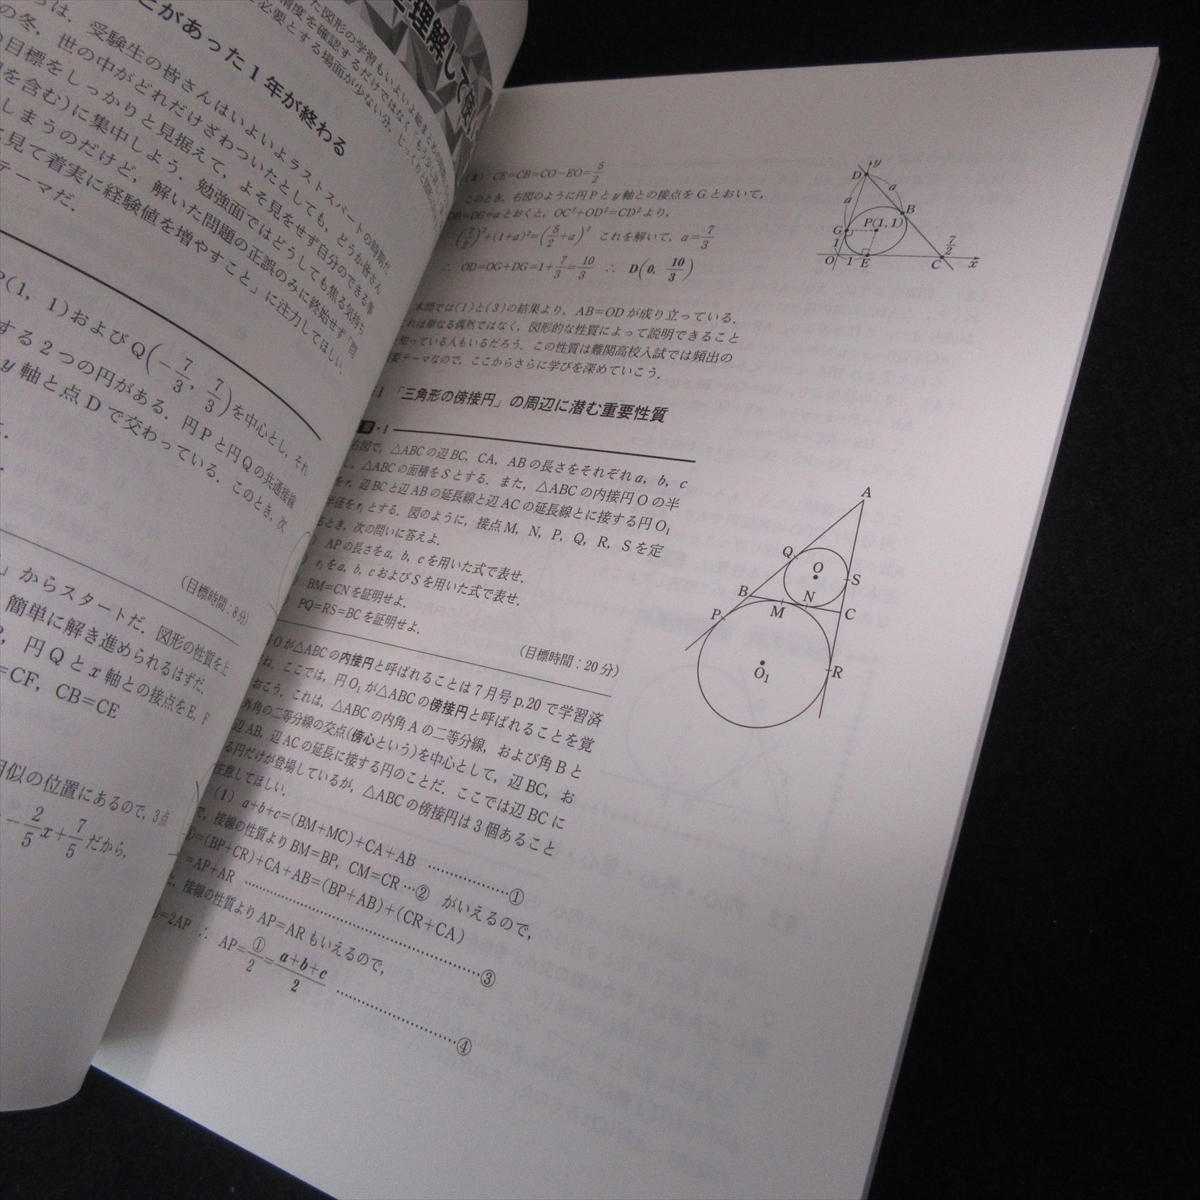 理解して使
とがあった1年が終わる
らは，受験生の皆さんはいよいよラストスパートの時期だ．
の冬，世の中がどれだけざわついたとしても，どうか皆さん
の目標をしっかりと見据えて，よそ見をせず自分のできる事
を含む)に集中しよう．勉強面ではどうしても焦る気持ち
しまうのだけど，解いた問題の正誤のみに終始せず「問
見て着実に経験値を増やすこと」に注力してほしい．
テーマだ．
P(1, 1)およびQ(-7/3, 7/3)を中心とし，それ
する2つの円がある．円Pと円Qの共通接線
y軸と点Dで交わっている．このとき，次
(目標時間：8分)
」からスタートだ．図形の性質を上
簡単に解き進められるはずだ．
円Qとx軸との接点をE, F
=CF, CB=CE
相似の位置にあるので，3点
-2/5x+7/5だから，
(3) CE=CB=CO-EO=5/2
このとき，右図のように円Pとy軸との接点をGとおいて，
DB=DG=aとおくと，OC²+OD²=CD²より，
(7/2)²+(1+a)²=(5/2+a)² これを解いて，a=7/3
∴ OD=OG+DG=1+7/3=10/3 ∴ D(0, 10/3)
y
D
a
B
a
P(1, 1)
G
1
7/2
O
1
E
C
x
本問では(1)と(3)の結果より，AB=ODが成り立っている．
これは単なる偶然ではなく，図形的な性質によって説明できること
知っている人もいるだろう．この性質は難関高校入試では頻出の
要テーマなので，ここからさらに学びを深めていこう．
1 「三角形の傍接円」の周辺に潜む重要性質
題・1
右図で，△ABCの辺BC, CA, ABの長さをそれぞれa, b, c
し，△ABCの面積をSとする．また，△ABCの内接円Oの半
をr，辺BCと辺ABの延長線と辺ACの延長線とに接する円O₁
半径をr₁とする．図のように，接点M, N, P, Q, R, Sを定
るとき，次の問いに答えよ．
APの長さをa, b, cを用いた式で表せ．
r₁をa, b, cおよびSを用いた式で表せ．
BM=CNを証明せよ．
PQ=RS=BCを証明せよ．
(目標時間：20分)
A
Q
O
S
B
N
M
C
P
O₁
R
Oが△ABCの内接円と呼ばれることは7月号p.20で学習済
ね．ここでは，円O₁が△ABCの傍接円と呼ばれることを覚
おこう．これは，△ABCの内角Aの二等分線，および角Bと
外角の二等分線の交点(傍心という)を中心として，辺BC，お
辺AB，辺ACの延長に接する円のことだ．ここでは辺BCに
る円だけが登場しているが，△ABCの傍接円は3個あること
注意してほしい．
(1) a+b+c=(BM+MC)+CA+AB ……………①
で，接線の性質よりBM=BP, CM=CR…② がいえるので，
=(BP+CR)+CA+AB=(BP+AB)+(CR+CA)
=AP+AR ……………③
，接線の性質よりAP=ARもいえるので，
=2AP ∴ AP=①/2=a+b+c/2 ……………④